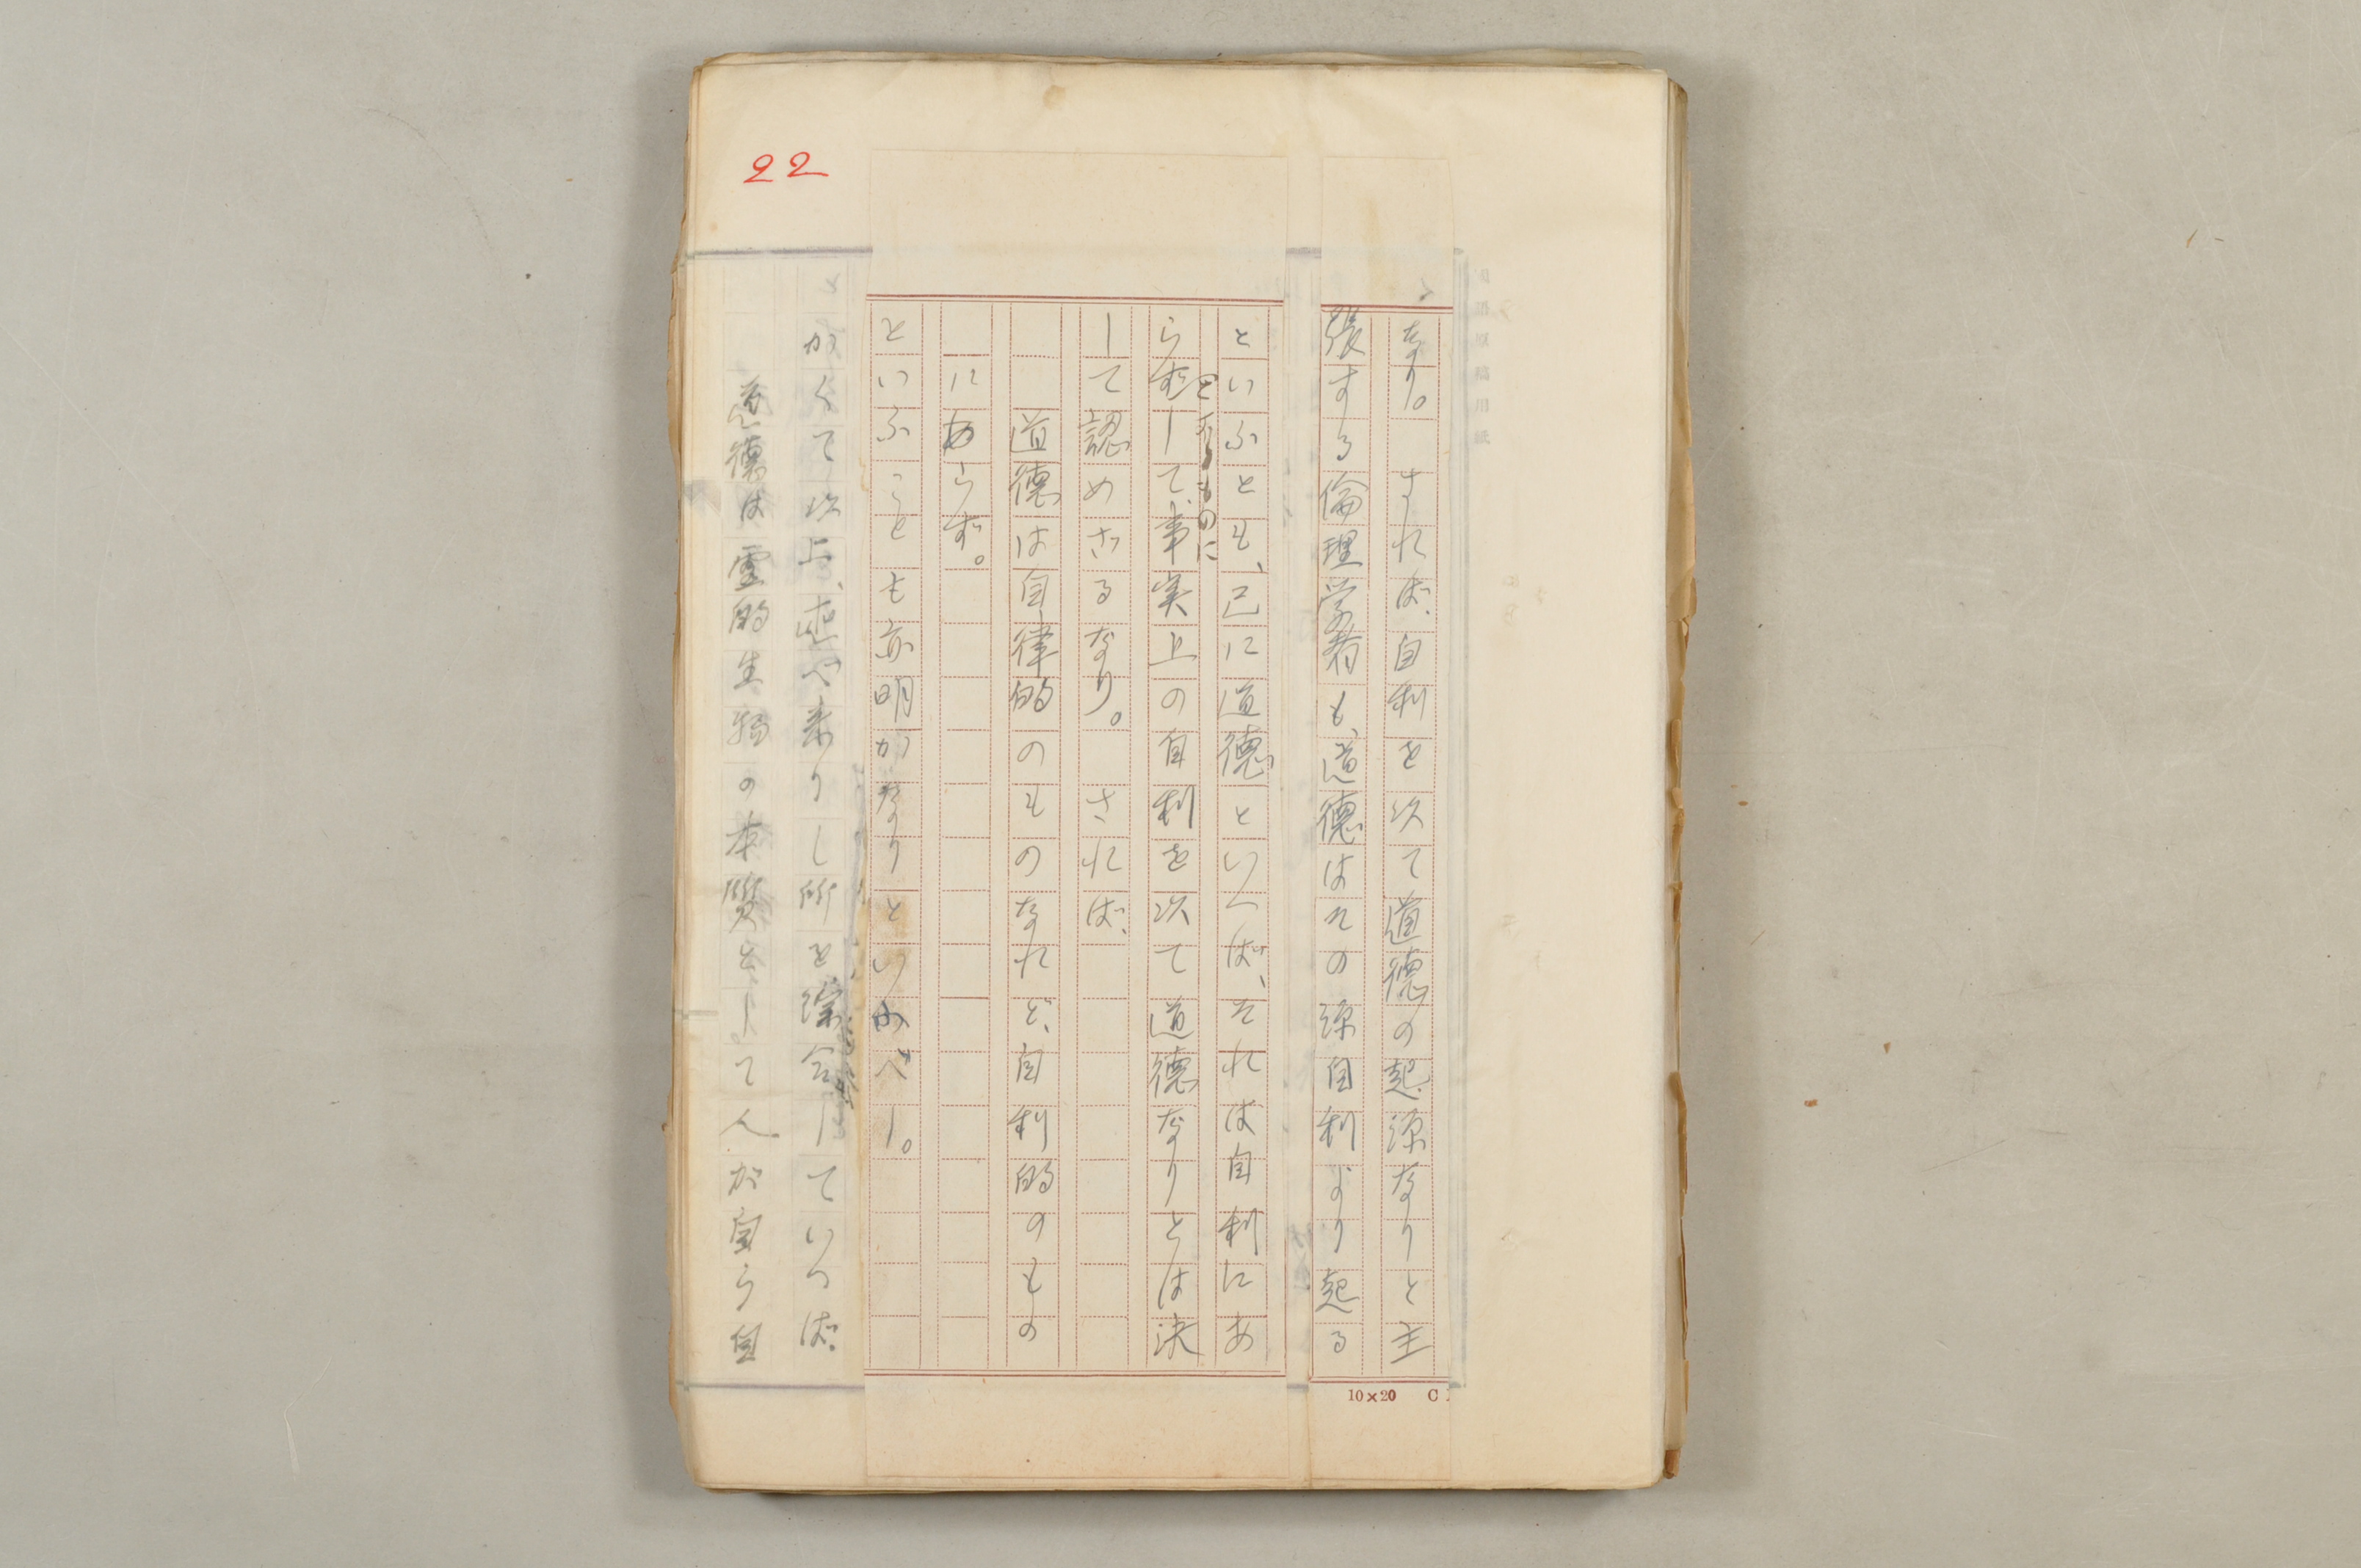 22
なり。　されば、自利を以て道徳の起源なりと主
張する倫理学者も、道徳はその源自利より起る
といふとも、已に道徳といへば、それは自利にあ
らずして、事実上の自利を以て道徳なりとは決
となるものに
して認めざるなり。　されば、
道徳は自律的のものなれど、自利的のもの
にあらず。
といふことも亦明かなりといふべし。
かくて以上、述べ来りし所を綜合していへば、
道徳は霊的生物の本質として人が自ら自
10×20